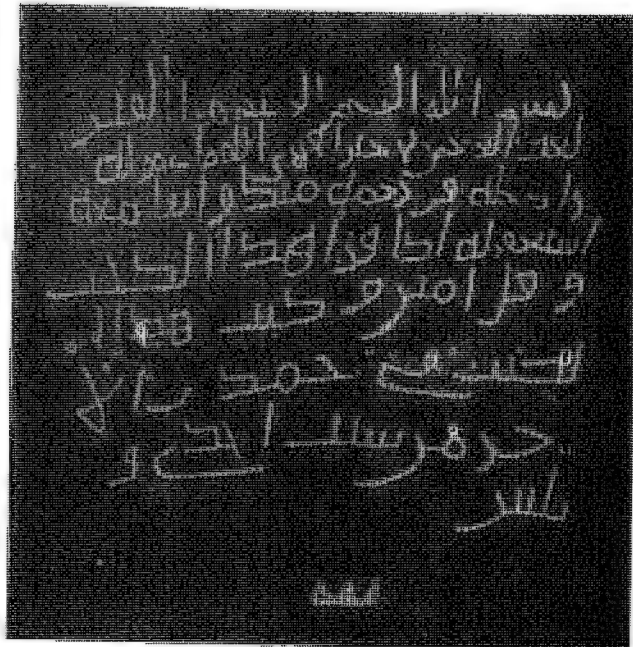 بسم الله الرحمن الرحيم هذا القبر
لعبد الرحمن بن خير الحجري اللهم اغفر له
وادخله في رحمه منك واتنا معه
استغفر له اذا قرا هذا الكتب
وقل امين وكتب هذا ا
لكتب في جمدى الا
خر من سنت احدى و
ثلثين